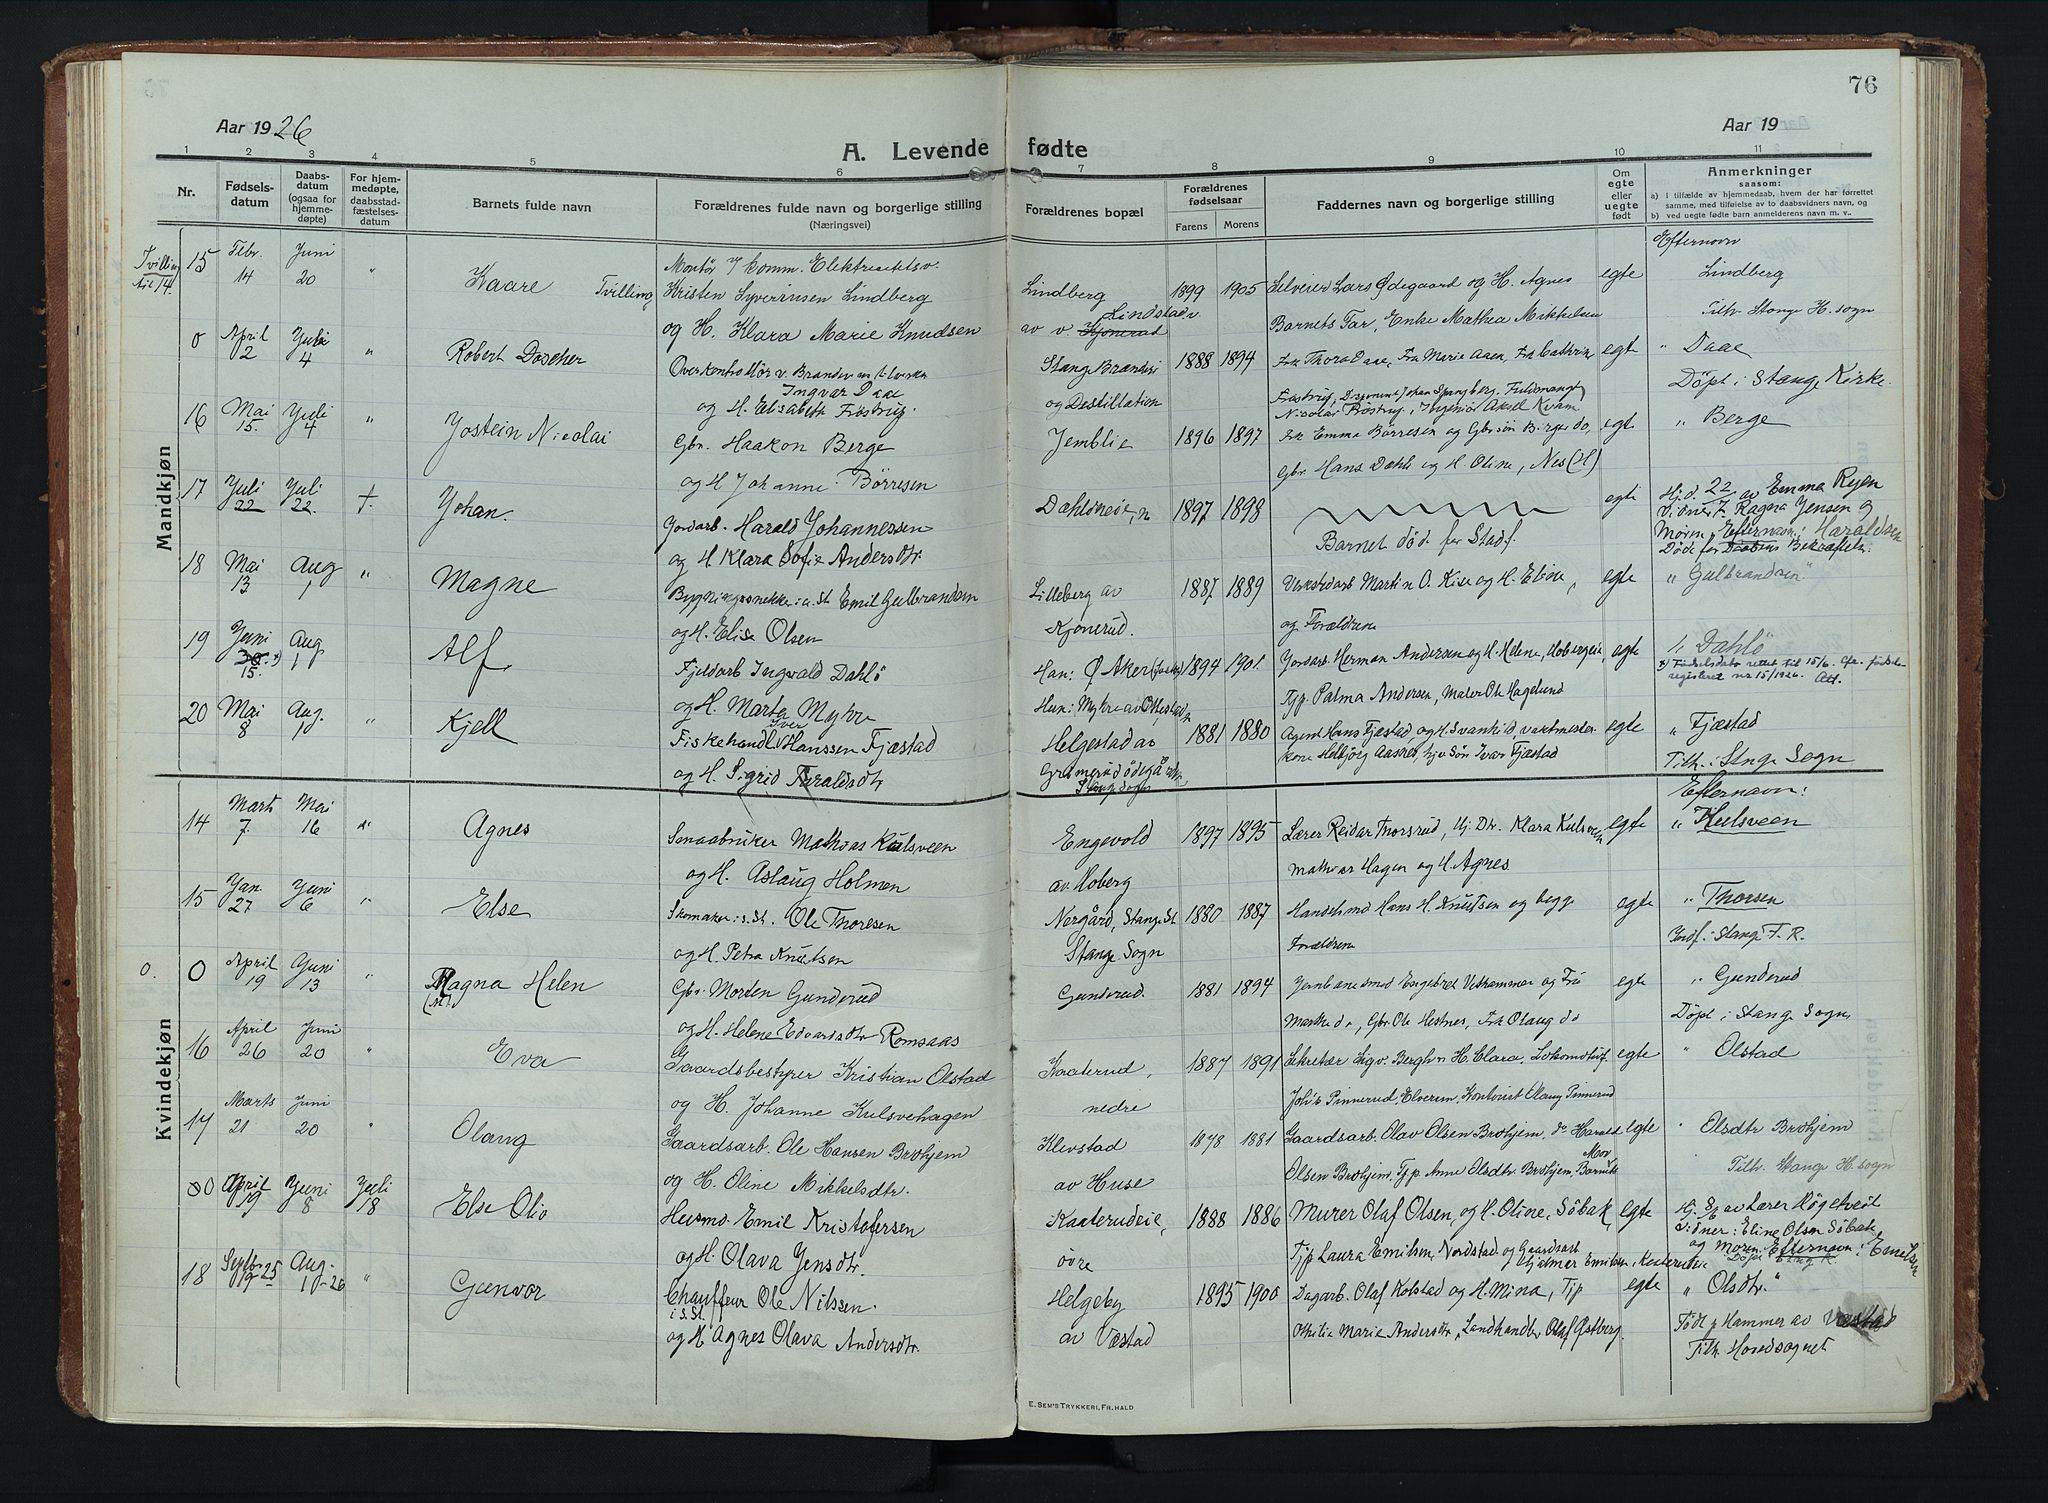 76
Aar 1926
Aar 19
A. Levende fødte
1 2 3 4 5 6 7 8 9 10 11
Nr.
Fødsels-
datum
Daabs-
datum
(ogsaa for
hjemme-
døpte)
For hjem-
medøpte,
daabsstad-
fæstelses-
datum
Barnets fulde navn
Forældrenes fulde navn og borgerlige stilling
(Næringsvei)
Forældrenes bopæl
Forældrenes
fødselsaar
Farens Morens
Faddernes navn og borgerlige stilling
Om
egte
eller
uegte
født
Anmerkninger
saasom:
a) i tilfælde av hjemmedaab, hvem der har forrettet
samme, med tilføielse av to daabsvidners navn, og
b) ved uegte fødte barn anmelderens navn m. v..
Mandkjøn
Efternavn
Tvilling til 14. 15 Febr. 14 Juni 20 " Kaare Tvilling Montør v/ komm. Elektricitetsv. Lindberg 1899 1905 Selveier Lars Ødegaard og H. Agnes egte Lindberg
Kristen Syverinsen Lindberg Lindstad v
og H. Klara Marie Knudsen av v. Kjonerud Barnets Far, Enke Mathea Mikkelsen Tilh. Stange H. sogn
0 April 2 Juli 4 " Robert Doscher Overkontrollør v. Stange Brænderi 1888 1894 Frk Thora Daae, Fru Marie Aaen, Frk Cathrin egte " Daae
Ingvar Daae
og H. Elisabeth Føstrup. og Destillation Døpt i Stange Kirke.
16 Mai 15. Juli 4 " Jostein Nicolai Gbr. Haakon Berge Jemblie 1896 1897 Frk Emma Børresen og Gbr.søn Birger do, egte " Berge
og H Johanne Børresen Gbr. Hans Dæhli og H. Oline, Nes (H)
17 Juli 22 Juli 22. † Johan. Jordarb. Harald Johannessen Dahløneie, n 1897 1898 egte Hj.d. 22/7 av Emma Ryen
Vidner: Ragna Jensen og
og H Klara Sofie Andersdtr. Barnet død før Stadf. Moren, Efternavn: Haraldsen
Døde før Daabens Bekræftelse.
18 Mai 13 Aug 1 " Magne Bygningssnekker i s. St. Emil Gulbrandsen Lilleberg av 1887 1889 Verkstedarb Martin O. Kise og H. Eline, egte " Gulbrandsen"
og H. Elise Olsen Kjonerud. og Forældrene
19 Juni 30. 15. Aug. 1 Alf. Fjeldarb Ingvald Dahlö Han: Ø Aker 1894 1901. Jordarb. Herman Andersen og H. Helene, Hobergeie, egte " Dahlö
x) Fødselsdato rettet til 15/6. cfr. fødsels-
registeret nr 15/1926.
og H. Marta Myhre Hun: Myhre av Ottestad Tjp. Palma Andersen, Maler Ole Hagelund
20 Mai 8 Aug. 1 " Kjell Fiskehandl. Iver Hanssen Fjæstad Helgestad av 1881 1880 Agent Hans Fjæstad, og H. Svanhild, vaktmester- egte " Fjæstad
kone Helbjörg Aasnes, hjv Søn Ivar Fjæstad
og H. Sigrid Taraldsdtr Gramerud ødegård Tilh. i Stange Sogn
Stange sogn
Kvindekjøn
Efternavn:
14 Marts 7. Mai 16 " Agnes Smaabruker Mathias Kulsveen Engevold 1897 1895 Lærer Reidar Thorsrud, Hj. Dtr. Klara Kulsveen egte " Kulsveen
og H. Aslaug Holmen av Hoberg Mathias Hagen og H. Agnes.
15 Jan. 27 Juni 6 " Else Skomaker i s. St. Ole Thoresen Nergård, Stange St. 1880 1887 Handelsmd Hans H. Knutsen og begge egte " Thorsen
og H. Petra Knutsen Stange Sogn Forældrene Indf. i Stange F. R.
o. 0 April 19 Juni 13 " Magna Helen Gbr. Morten Gunderud Gunderud. 1881 1894 Jernbanesmd Engebret Vethammer og Fru egte " Gunderud
og H. Helene Edvardsdtr Romsaas Marthe do, Gbr. Ole Hestnes, Frk Olaug do Døpt i Stange Sogn
16 April 26 Juni 20 " Eva Gaardsbestyrer Kristian Olstad Kaaterud, 1887 1891 Sekretær Sigv. Bergh n H. Clara, Lokomotivf. egte " Olstad
og H. Johanne Kulsvehagen nedre Johs Pinnerud, Elverum, Kontorist Olaug Pinnerud
17 Marts 21 Juni 20 " Olaug Gaardsarb. Ole Hansen Brohjem Klevstad 1878 1881 Gaardsarb. Olav Olsen Brohjem, do Harald egte " Olsdtr Brohjem
og H. Oline Mikkelsdtr. av Huse Olsen Brohjem, Tjp Anne Olsdtr. Brohjem, Barnets Mor Tilh. Stange H. sogn
0 April 19 Juni 8 Juli 18 Else Olio Husmd. Emil Kristofersen Kaaterudeie, 1888 1886 Murer Olaf Olsen, og H. Oline, Söbak, egte Hj. 8/6 av Lærer Högetveit
Vidner: Eline Olsen Söbak,
og H. Olava Jensdtr. övre Tjp Laura Emilsen, Nordstad og Gaardsarb Hjelmer Emilsen, Kaaterudeie og Moren. Efternavn: Emilsen
Døpt Stange K.
18 Septbr 25 19 Aug. 1 - 26 " Gunvor Chauffeur Ole Nilssen. Helgeby 1895 1900 Dagarb. Olaf Kolstad og H. Mina, Tjp egte " Olsdtr. "
i s. St.
og H Agnes Olava Andersdtr. av Væstad Othilie Marie Andersdtr, Landhandler Olaf Østberg. Född p Hammer av Væstad
Tilh. Hovedsognet
E. SEM'S TRYKKERI, FR. HALD